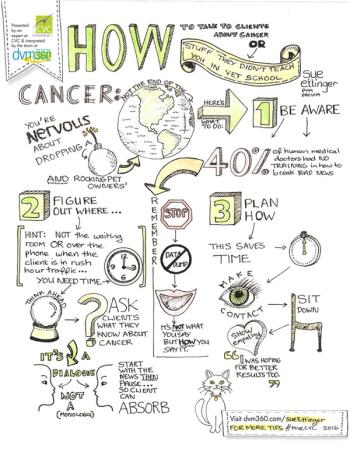 Presented
by an
expert at
CVC & interpreted
by the team at
CVC
dvm360
HOW
TO TALK TO CLIENTS
ABOUT CANCER
OR
STUFF THEY DIDN'T TEACH
YOU IN VET SCHOOL
Sue
Ettinger
DVM
CANCER:
NOT THE END OF THE
YOU'RE
NERVOUS
ABOUT
DROPPING A
AND ROCKING PET
OWNERS'
HERE'S
WHAT
TO DO:
1 BE AWARE
40% of human medical
doctors had NO
TRAINING in how to
break BAD NEWS
2 FIGURE
OUT WHERE...
HINT: NOT the waiting
room OR over the
phone when the
client is in rush
hour traffic...
YOU NEED TIME
THINK AHEAD
? ASK
CLIENTS
WHAT THEY
KNOW ABOUT
CANCER
IT'S A
DIALOGUE
NOT A
(MONOLOGUE)
START
WITH THE
NEWS THEN
PAUSE...
SO CLIENT
CAN
ABSORB
REMEMBER
STOP
DATA
DUMP
IT'S NOT WHAT
YOU SAY
BUT HOW YOU
SAY IT.
3 PLAN
HOW
THIS SAVES
TIME
MAKE
CONTACT
SIT
DOWN
Show
empathy
"I WAS HOPING
FOR BETTER
RESULTS TOO."
Visit dvm360.com/SueEttinger
FOR MORE TIPS #thecvc 2016